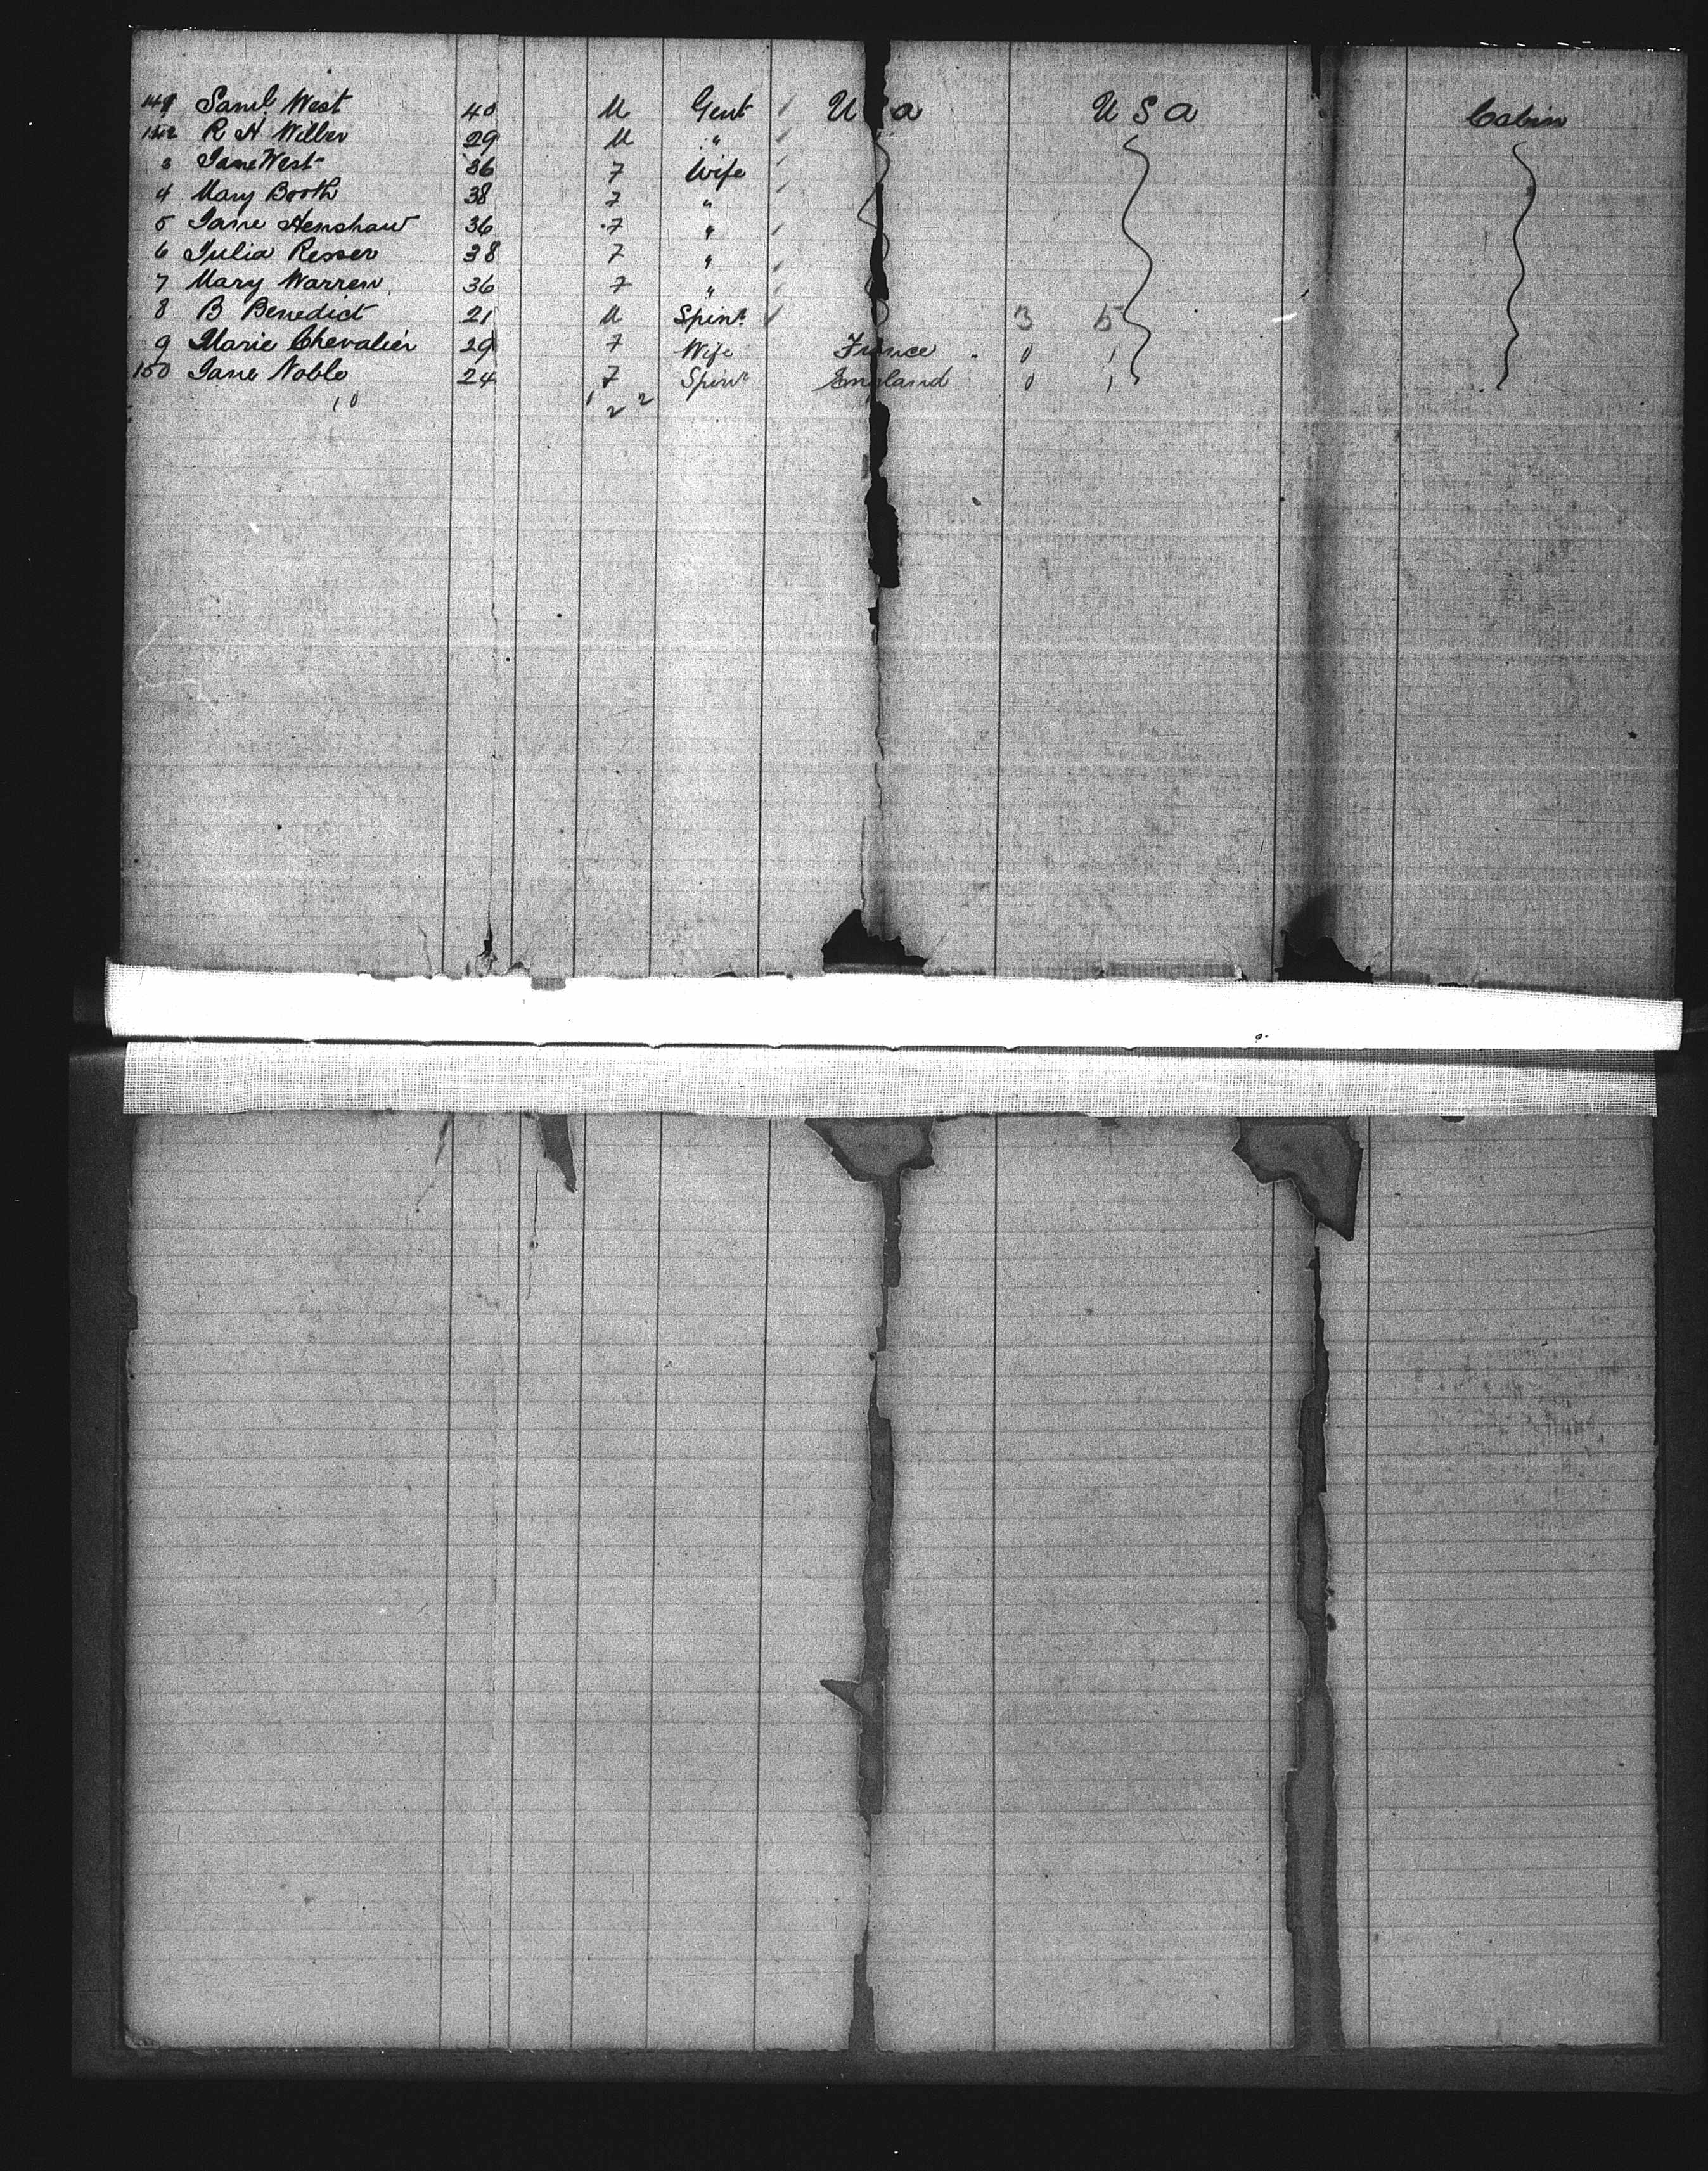 141 Saml West 40 M Gent / U S A U S A Cabin
142 R H Wilber 29 M " /
3 Jane West 36 F Wife /
4 Mary Booth 38 F " /
5 Jane Henshaw 36 F " /
6 Julia Resser 38 F " /
7 Mary Warren 36 F " /
8 B Benedict 21 M Spinr / 3 5
9 Marie Chevalier 29 F Wife France 0 1
150 Jane Noble 24 F Spinr England 0 1
10 1 2 2